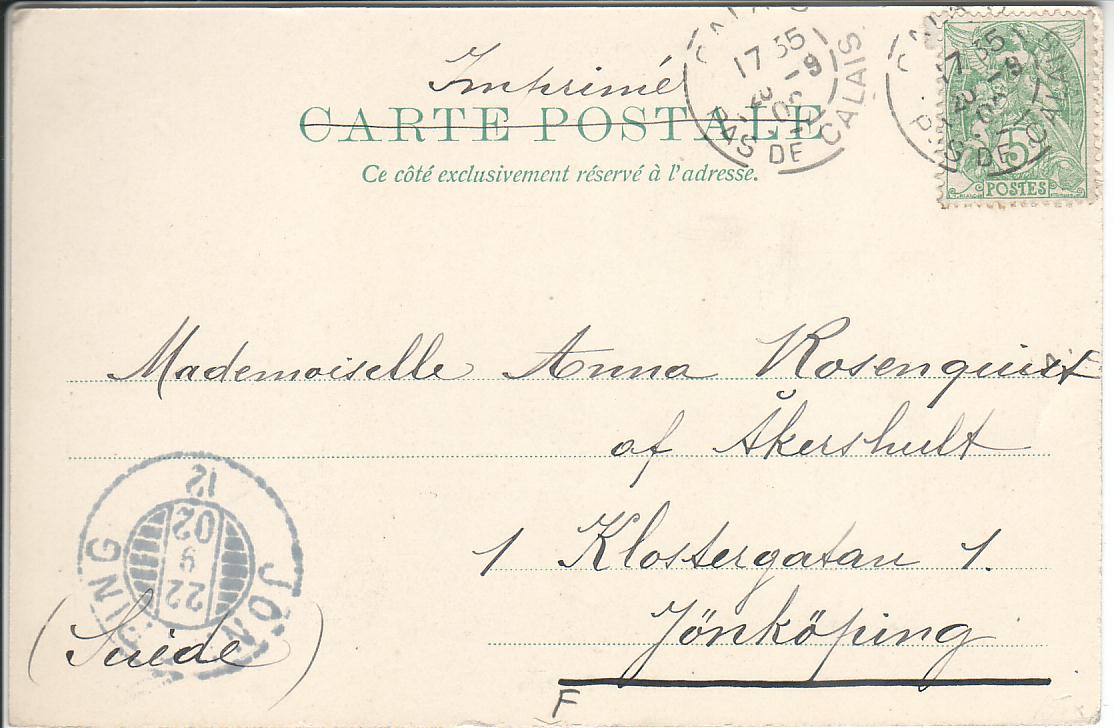 Imprimé
CARTE POSTALE
Ce côté exclusivement réservé à l'adresse.
17 35
20 -9
02
PAS DE CALAIS
17 35
20 -9
02
PAS DE CALAIS
5
POSTES
Mademoiselle Anna Rosenquist
af Åkershult
1 Klostergatan 1.
Jönköping
(Suède)
12
02
9
22
F